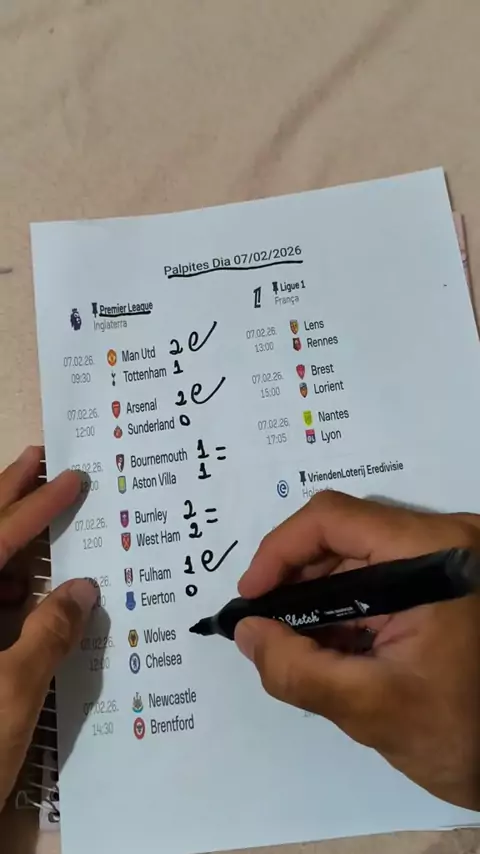 Palpites Dia 07/02/2026
Premier League
Inglaterra
07.02.26. Man Utd 2
09:30 Tottenham 1
07.02.26. Arsenal 2
12:00 Sunderland 0
Bournemouth 1 =
Aston Villa 1
07.02.26. Burnley 2 =
12:00 West Ham 2
Fulham 1
Everton 0
Wolves
12:00 Chelsea
07.02.26. Newcastle
14:30 Brentford
Ligue 1
França
07.02.26. Lens
13:00 Rennes
07.02.26. Brest
15:00 Lorient
07.02.26. Nantes
17:05 Lyon
VriendenLoterij Eredivisie
Sketch